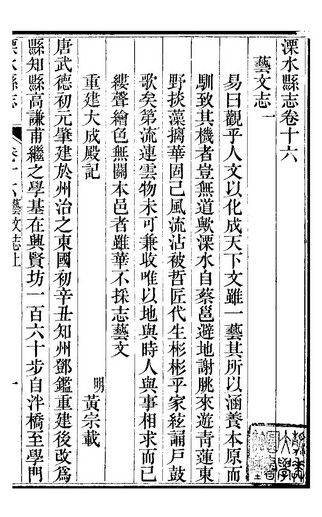 溧水縣志卷十六
藝文志一
易曰觀乎人文以化成天下文雖一藝其所以涵養本原而
馴致其機者豈無道歟溧水自蔡邕避地謝朓來遊青蓮東
野掞藻摛華固已風流沾被哲匠代生彬彬乎家絃誦戶鼓
歌矣第流連雲物未可兼收唯以地與時人與事相求而已
縷聲繪色無關本邑者雖華不採志藝文
重建大成殿記
明 黃宗載
唐武德初元肇建於州治之東國初辛丑知州鄧鑑重建後改爲
縣知縣高謙甫繼之學基在興賢坊一百六十步自泮橋至學門
溧水縣志
卷十六 藝文志上
一